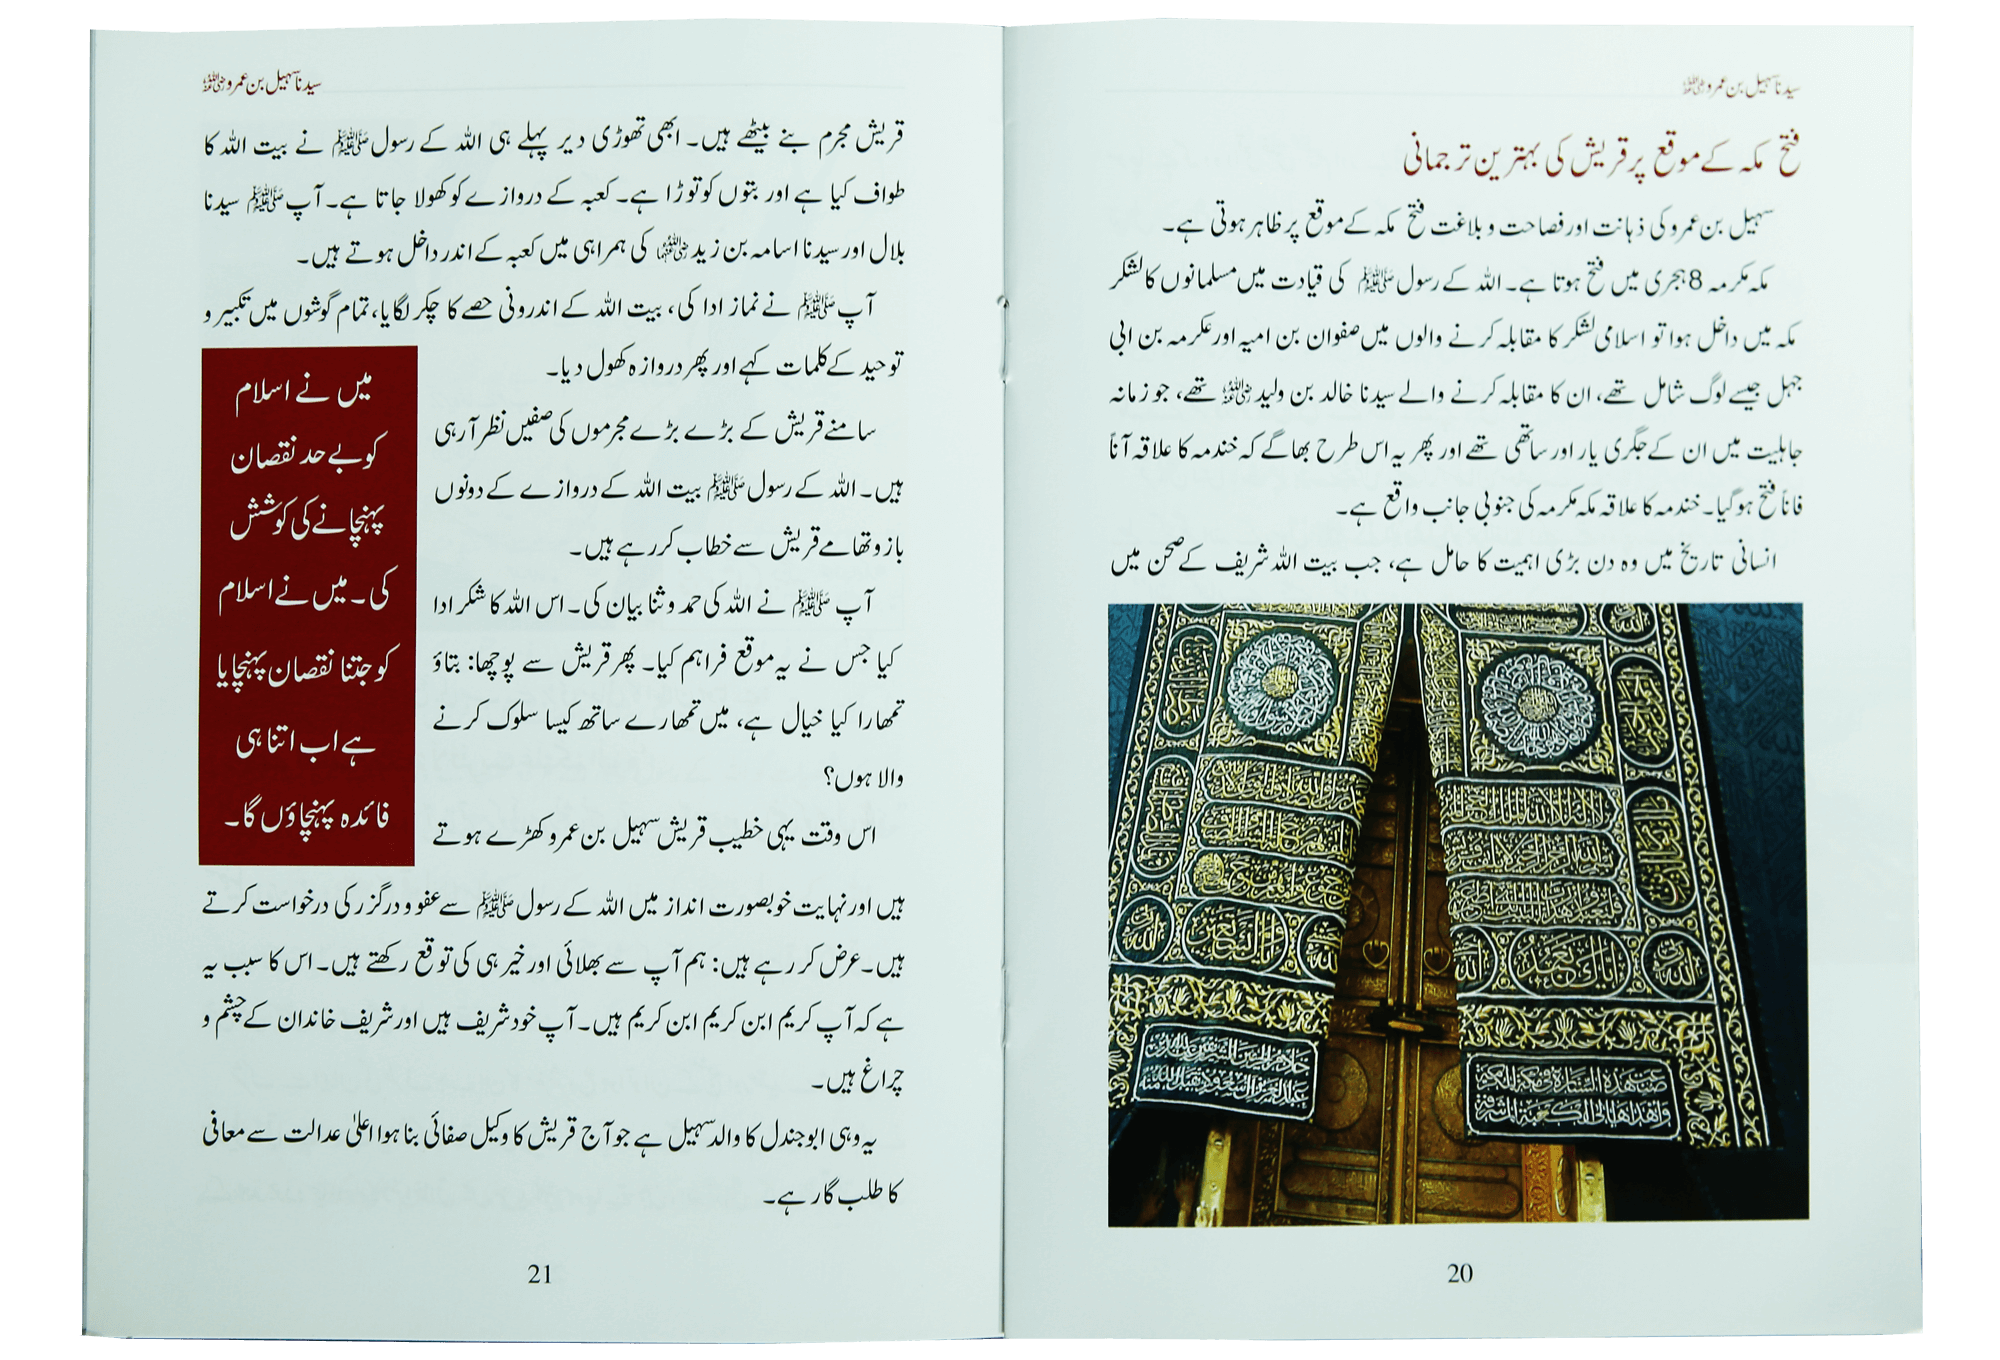 سیدنا سہیل بن عمرو رضی اللہ عنہ
فتح مکہ کے موقع پر قریش کی بہترین ترجمانی
سہیل بن عمرو کی ذہانت اور فصاحت و بلاغت فتح مکہ کے موقع پر ظاہر ہوتی ہے۔
مکہ مکرمہ 8 ہجری میں فتح ہوتا ہے۔ اللہ کے رسول ﷺ کی قیادت میں مسلمانوں کا لشکر
مکہ میں داخل ہوا تو اسلامی لشکر کا مقابلہ کرنے والوں میں صفوان بن امیہ اور عکرمہ بن ابی
جہل جیسے لوگ شامل تھے، ان کا مقابلہ کرنے والے سیدنا خالد بن ولید رضی اللہ عنہ تھے، جو زمانہ
جاہلیت میں ان کے جگری یار اور ساتھی تھے اور پھر یہ اس طرح بھاگے کہ خندمہ کا علاقہ آناً
فاناً فتح ہوگیا۔ خندمہ کا علاقہ مکہ مکرمہ کی جنوبی جانب واقع ہے۔
انسانی تاریخ میں وہ دن بڑی اہمیت کا حامل ہے، جب بیت اللہ شریف کے صحن میں
20
سیدنا سہیل بن عمرو رضی اللہ عنہ
قریش مجرم بنے بیٹھے ہیں۔ ابھی تھوڑی دیر پہلے ہی اللہ کے رسول ﷺ نے بیت اللہ کا
طواف کیا ہے اور بتوں کو توڑا ہے۔ کعبہ کے دروازے کو کھولا جاتا ہے۔ آپ ﷺ سیدنا
بلال اور سیدنا اسامہ بن زید رضی اللہ عنہما کی ہمراہی میں کعبہ کے اندر داخل ہوتے ہیں۔
آپ ﷺ نے نماز ادا کی، بیت اللہ کے اندرونی حصے کا چکر لگایا، تمام گوشوں میں تکبیر و
توحید کے کلمات کہے اور پھر دروازہ کھول دیا۔
سامنے قریش کے بڑے بڑے مجرموں کی صفیں نظر آ رہی
ہیں۔ اللہ کے رسول ﷺ بیت اللہ کے دروازے کے دونوں
بازو تھامے قریش سے خطاب کر رہے ہیں۔
آپ ﷺ نے اللہ کی حمد و ثنا بیان کی۔ اس اللہ کا شکر ادا
کیا جس نے یہ موقع فراہم کیا۔ پھر قریش سے پوچھا: بتاؤ
تمھارا کیا خیال ہے، میں تمھارے ساتھ کیسا سلوک کرنے
والا ہوں؟
اس وقت یہی خطیب قریش سہیل بن عمرو کھڑے ہوتے
ہیں اور نہایت خوبصورت انداز میں اللہ کے رسول ﷺ سے عفو و درگزر کی درخواست کرتے
ہیں۔ عرض کر رہے ہیں: ہم آپ سے بھلائی اور خیر ہی کی توقع رکھتے ہیں۔ اس کا سبب یہ
ہے کہ آپ کریم ابن کریم ابن کریم ہیں۔ آپ خود شریف ہیں اور شریف خاندان کے چشم و
چراغ ہیں۔
یہ وہی ابو جندل کا والد سہیل ہے جو آج قریش کا وکیل صفائی بنا ہوا اعلیٰ عدالت سے معافی
کا طلب گار ہے۔
میں نے اسلام
کو بے حد نقصان
پہنچانے کی کوشش
کی۔ میں نے اسلام
کو جتنا نقصان پہنچایا
ہے اب اتنا ہی
فائدہ پہنچاؤں گا۔
21